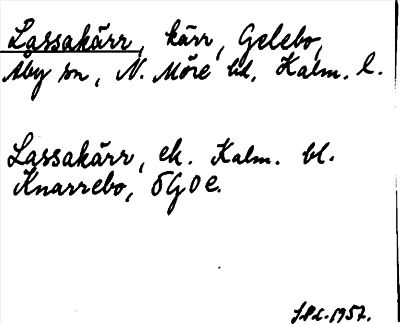 Lassakärr, kärr, Gelebo,
Åby sn, N. Möre hd, Kalm. l.
Lassakärr, ek. Kalm. bl.
Knarrebo, 5G0e.
1957.